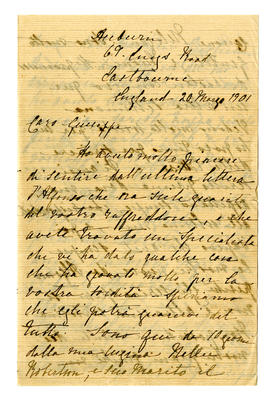 Auburn
69. Kings Road
Eastbourne
England - 20. Marzo 1901
Caro Giuseppe
Ho avuto molto piacere
di sentire dall'ultima lettera
d'Alfonso che ora siete guarito
del vostro raffreddore, e che
avete trovato un Specialista
che vi ha dato qualche cosa
che ha giovato molto per la
vostra sordità - speriamo
che egli potrà guarirvi del
tutto. Sono qui da 10 giorni
dalla mia cugina Nellie
Robertson, e suo marito il